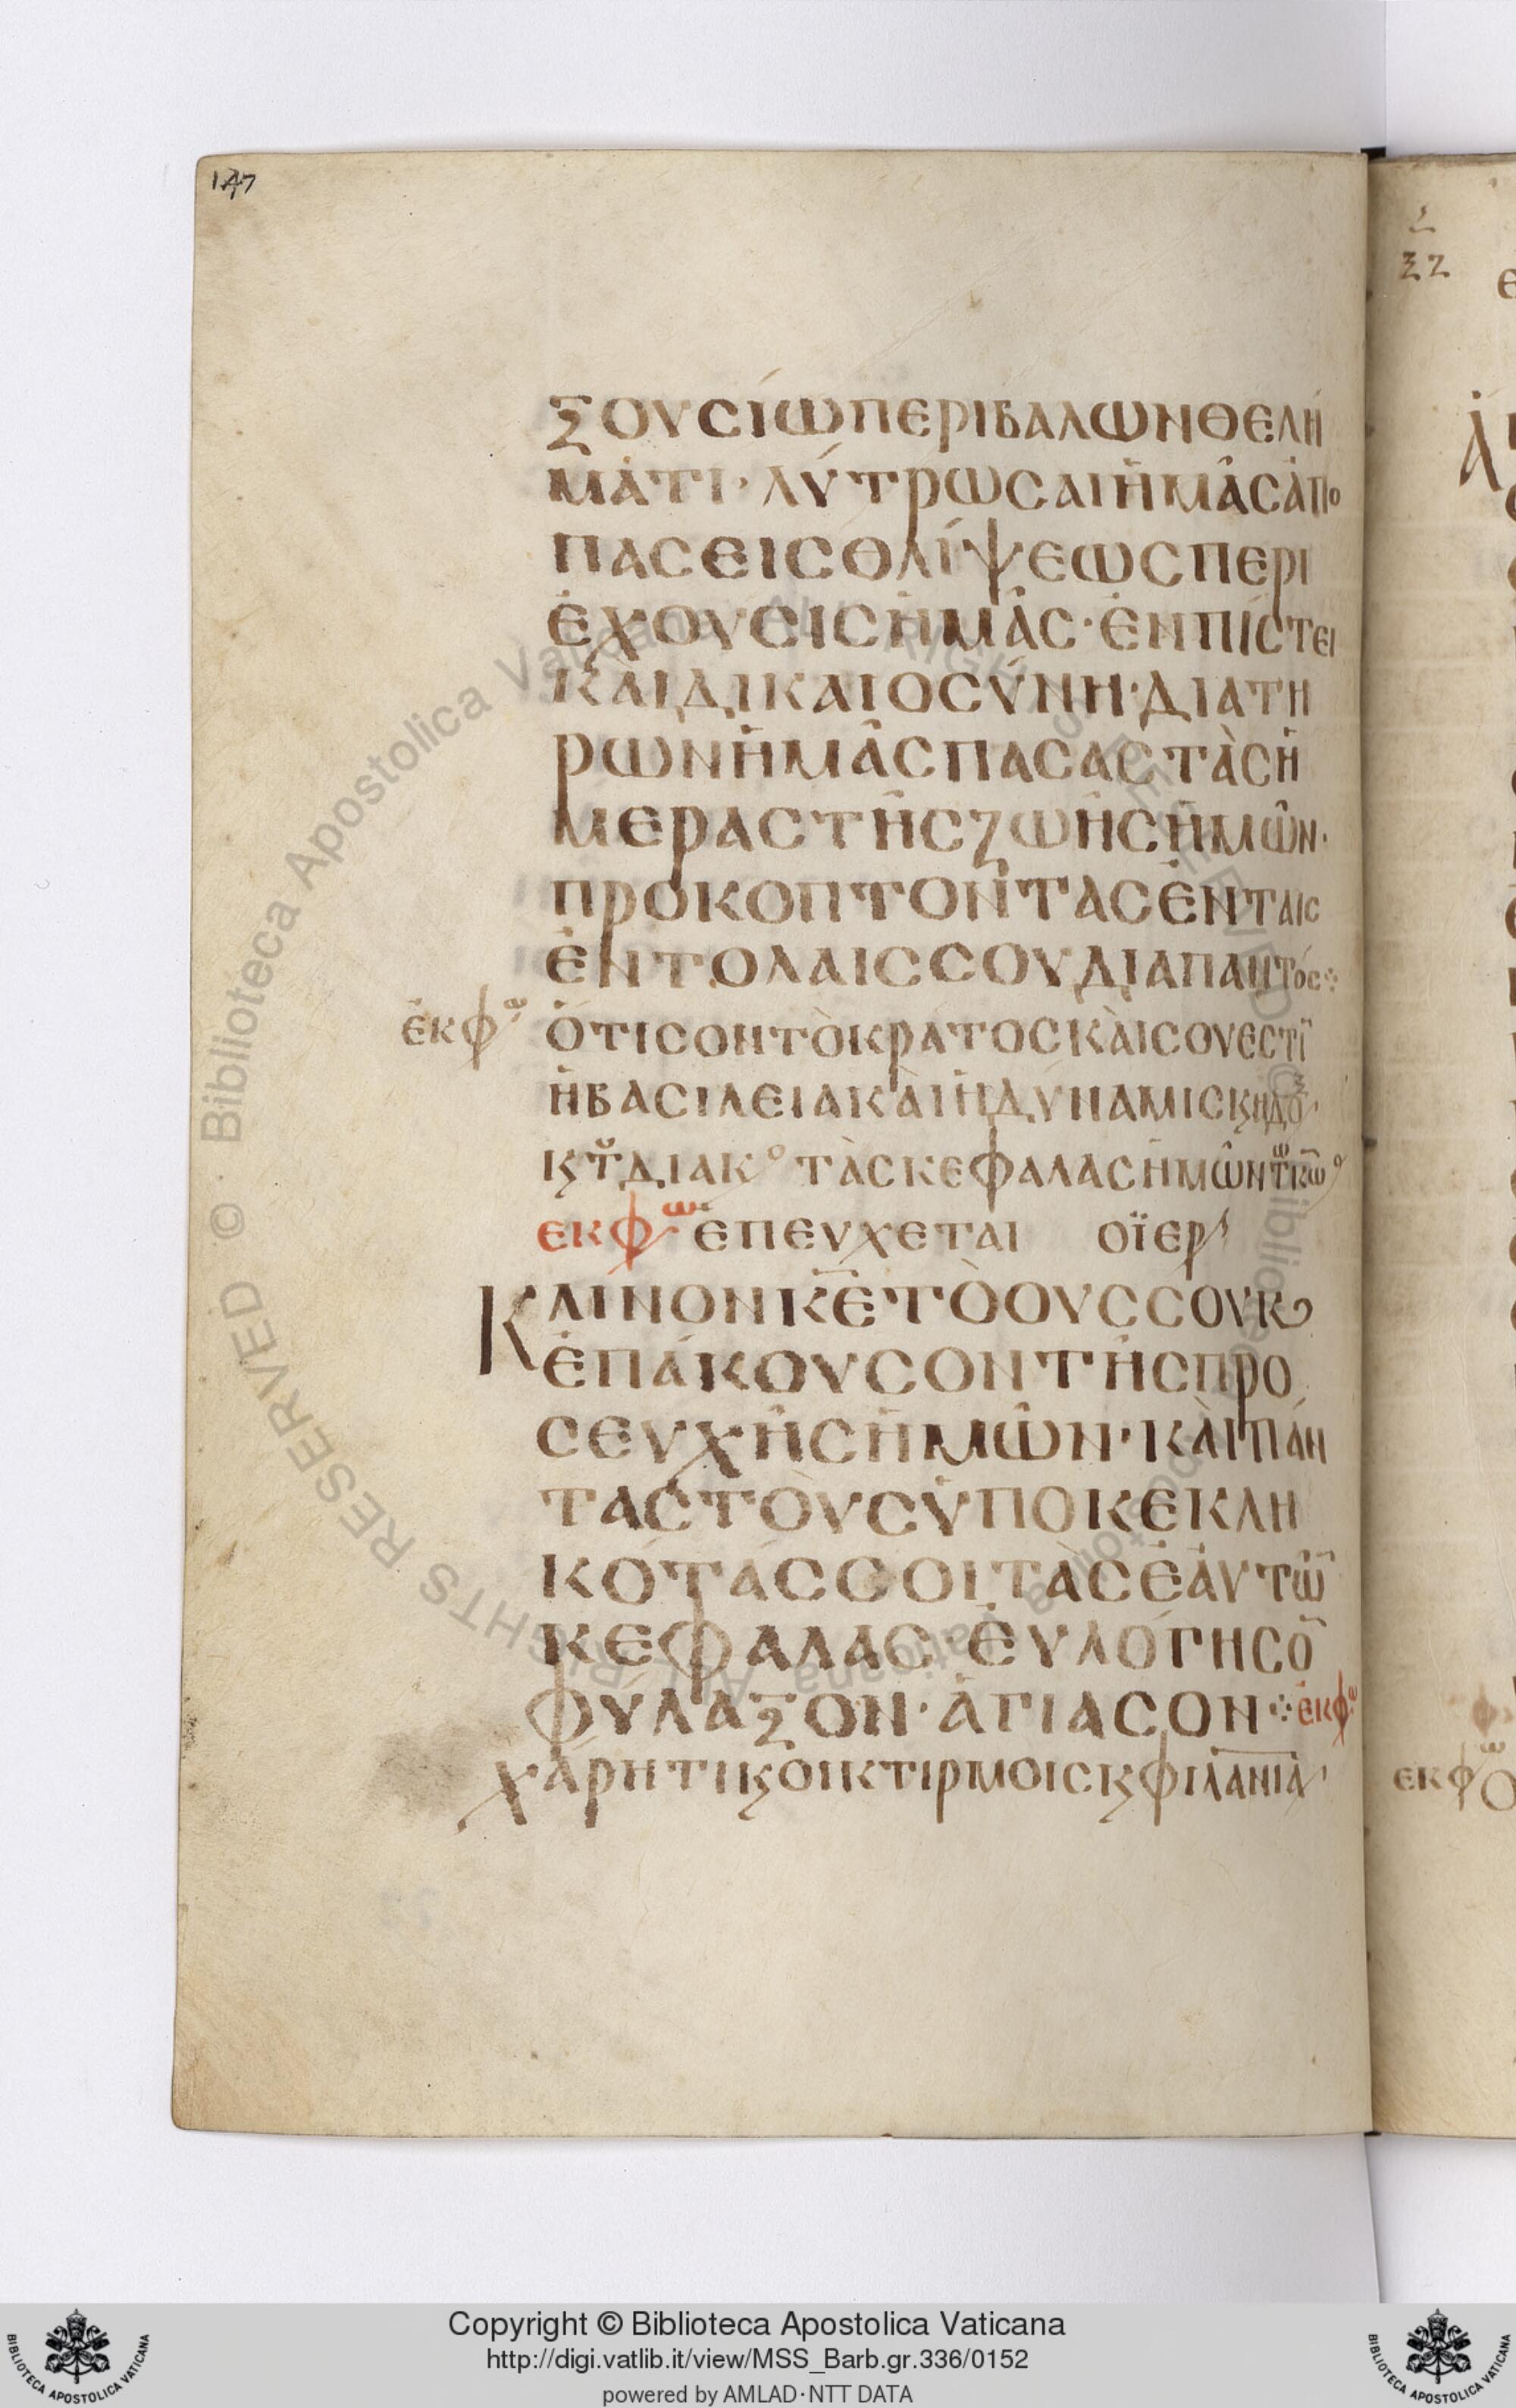 147
ξουσίω περιβαλων θελή
μάτι· λύτρωσαι ἡμᾶς ἀπο
πασεισ θλίψεως περι
ἐχουσις ἡμᾶς· ἐν πίστει
και δικαιοσύνη· διατη
ρων ἡμᾶς πασας τὰς ἡ
μερας τῆς ζωῆς ἡμῶν·
προκοπτοντας ἐν ταις
ἐντολαις σου διαπαντός
ἐκφω ὅτι σον τὸ κρατος κὰι σου εστι
ἡ βασιλεια κὰι ἡ δύναμις ϗ η δο
ϗ τȣ διακο τὰς κεφαλας ἡμῶν τω κω
εκφω ἐπευχεται ο ϊερ
Κλίνον κε τὸ ους σου κ
ἐπάκουσον τῆς προ
σευχῆς ἡμῶν· κὰι πάν
τας τὸυς ὑποκεκλη
κότάς σοι τὰς ἑαυτῶ
κεφαλας· ἐυλόγησο
φύλαξον· ἁγιασον· ἐκφ
χάρητι ϗ οικτιρμοις ϗ φιλανια
32
εκφω
Copyright © Biblioteca Apostolica Vaticana
http://digi.vatlib.it/view/MSS_Barb.gr.336/0152
powered by AMLAD·NTT DATA
BIBLIOTECA APOSTOLICA VATICANA
BIBLIOTECA APOSTOLICA VATICANA